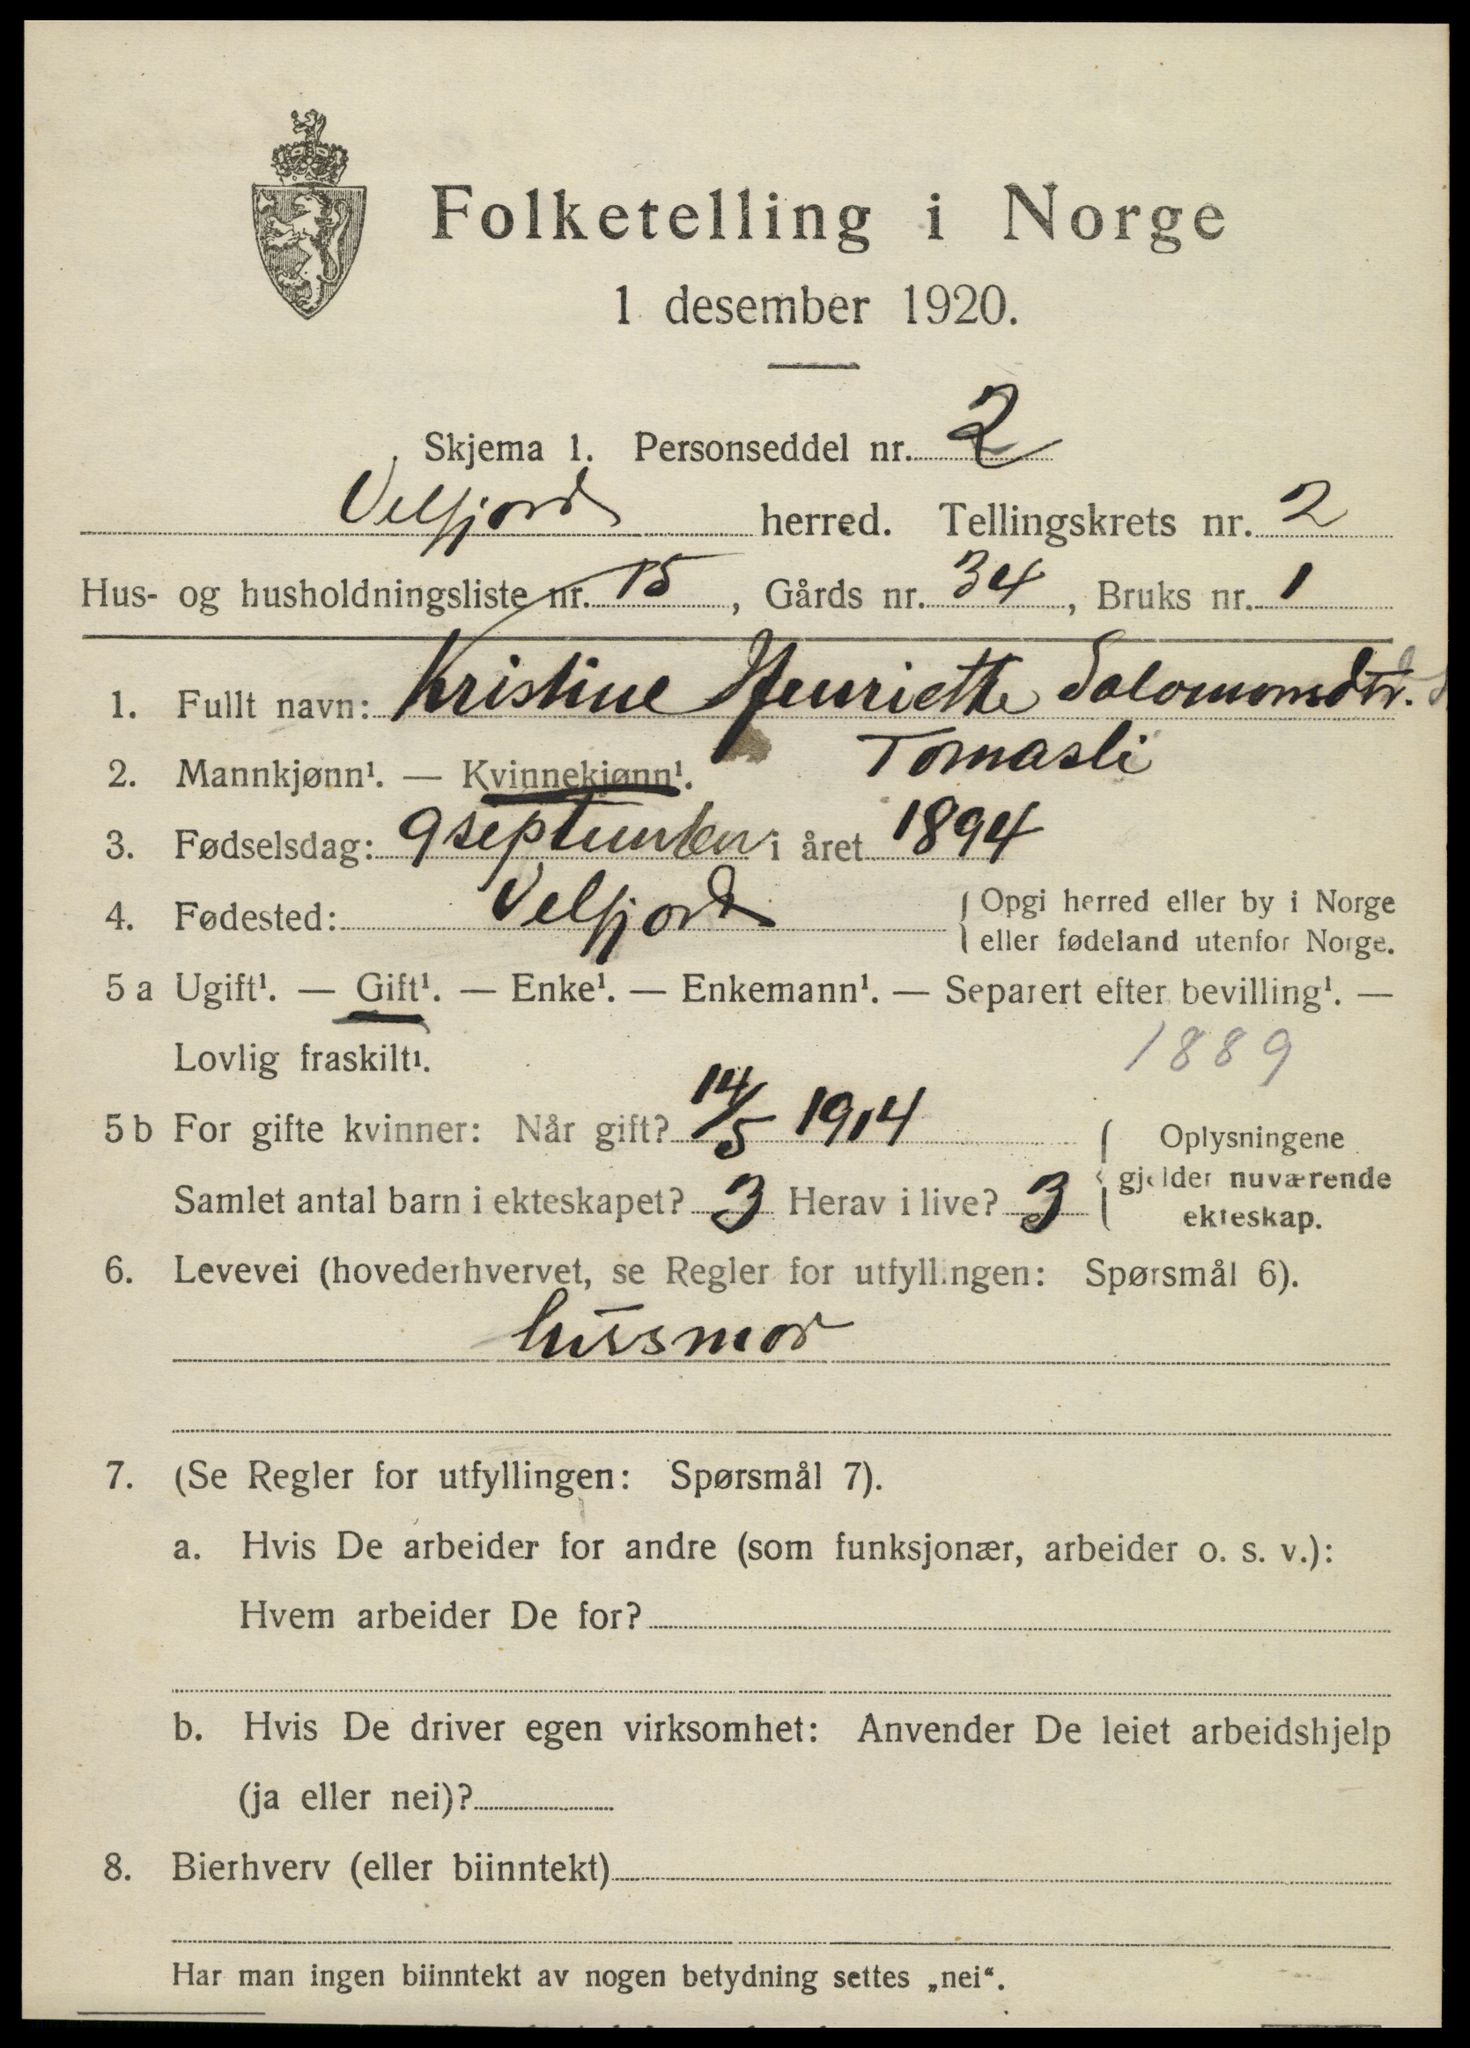 Folketelling i Norge
1 desember 1920.
Skjema 1. Personseddel nr. 2
Velfjord herred. Tellingskrets nr. 2
Hus- og husholdningsliste nr. 15, Gårds nr. 34, Bruks nr. 1
1. Fullt navn: Kristine Henriette Salomonsdtr.
Tomasli
2. Mannkjønn¹. — Kvinnekjønn¹.
3. Fødselsdag: 9 september i året 1894
4. Fødested: Velfjord { Opgi herred eller by i Norge
eller fødeland utenfor Norge.
5 a Ugift¹. — Gift¹. — Enke¹. — Enkemann¹. — Separert efter bevilling¹. —
Lovlig fraskilt¹. 1889
5 b For gifte kvinner: Når gift? 14/5 1914 { Oplysningene
gjelder nuværende
Samlet antal barn i ekteskapet? 3 Herav i live? 3 ekteskap.
6. Levevei (hovederhvervet, se Regler for utfyllingen: Spørsmål 6).
husmor
7. (Se Regler for utfyllingen: Spørsmål 7).
a. Hvis De arbeider for andre (som funksjonær, arbeider o. s. v.):
Hvem arbeider De for?
b. Hvis De driver egen virksomhet: Anvender De leiet arbeidshjelp
(ja eller nei)?
8. Bierhverv (eller biinntekt)
Har man ingen biinntekt av nogen betydning settes „nei“.